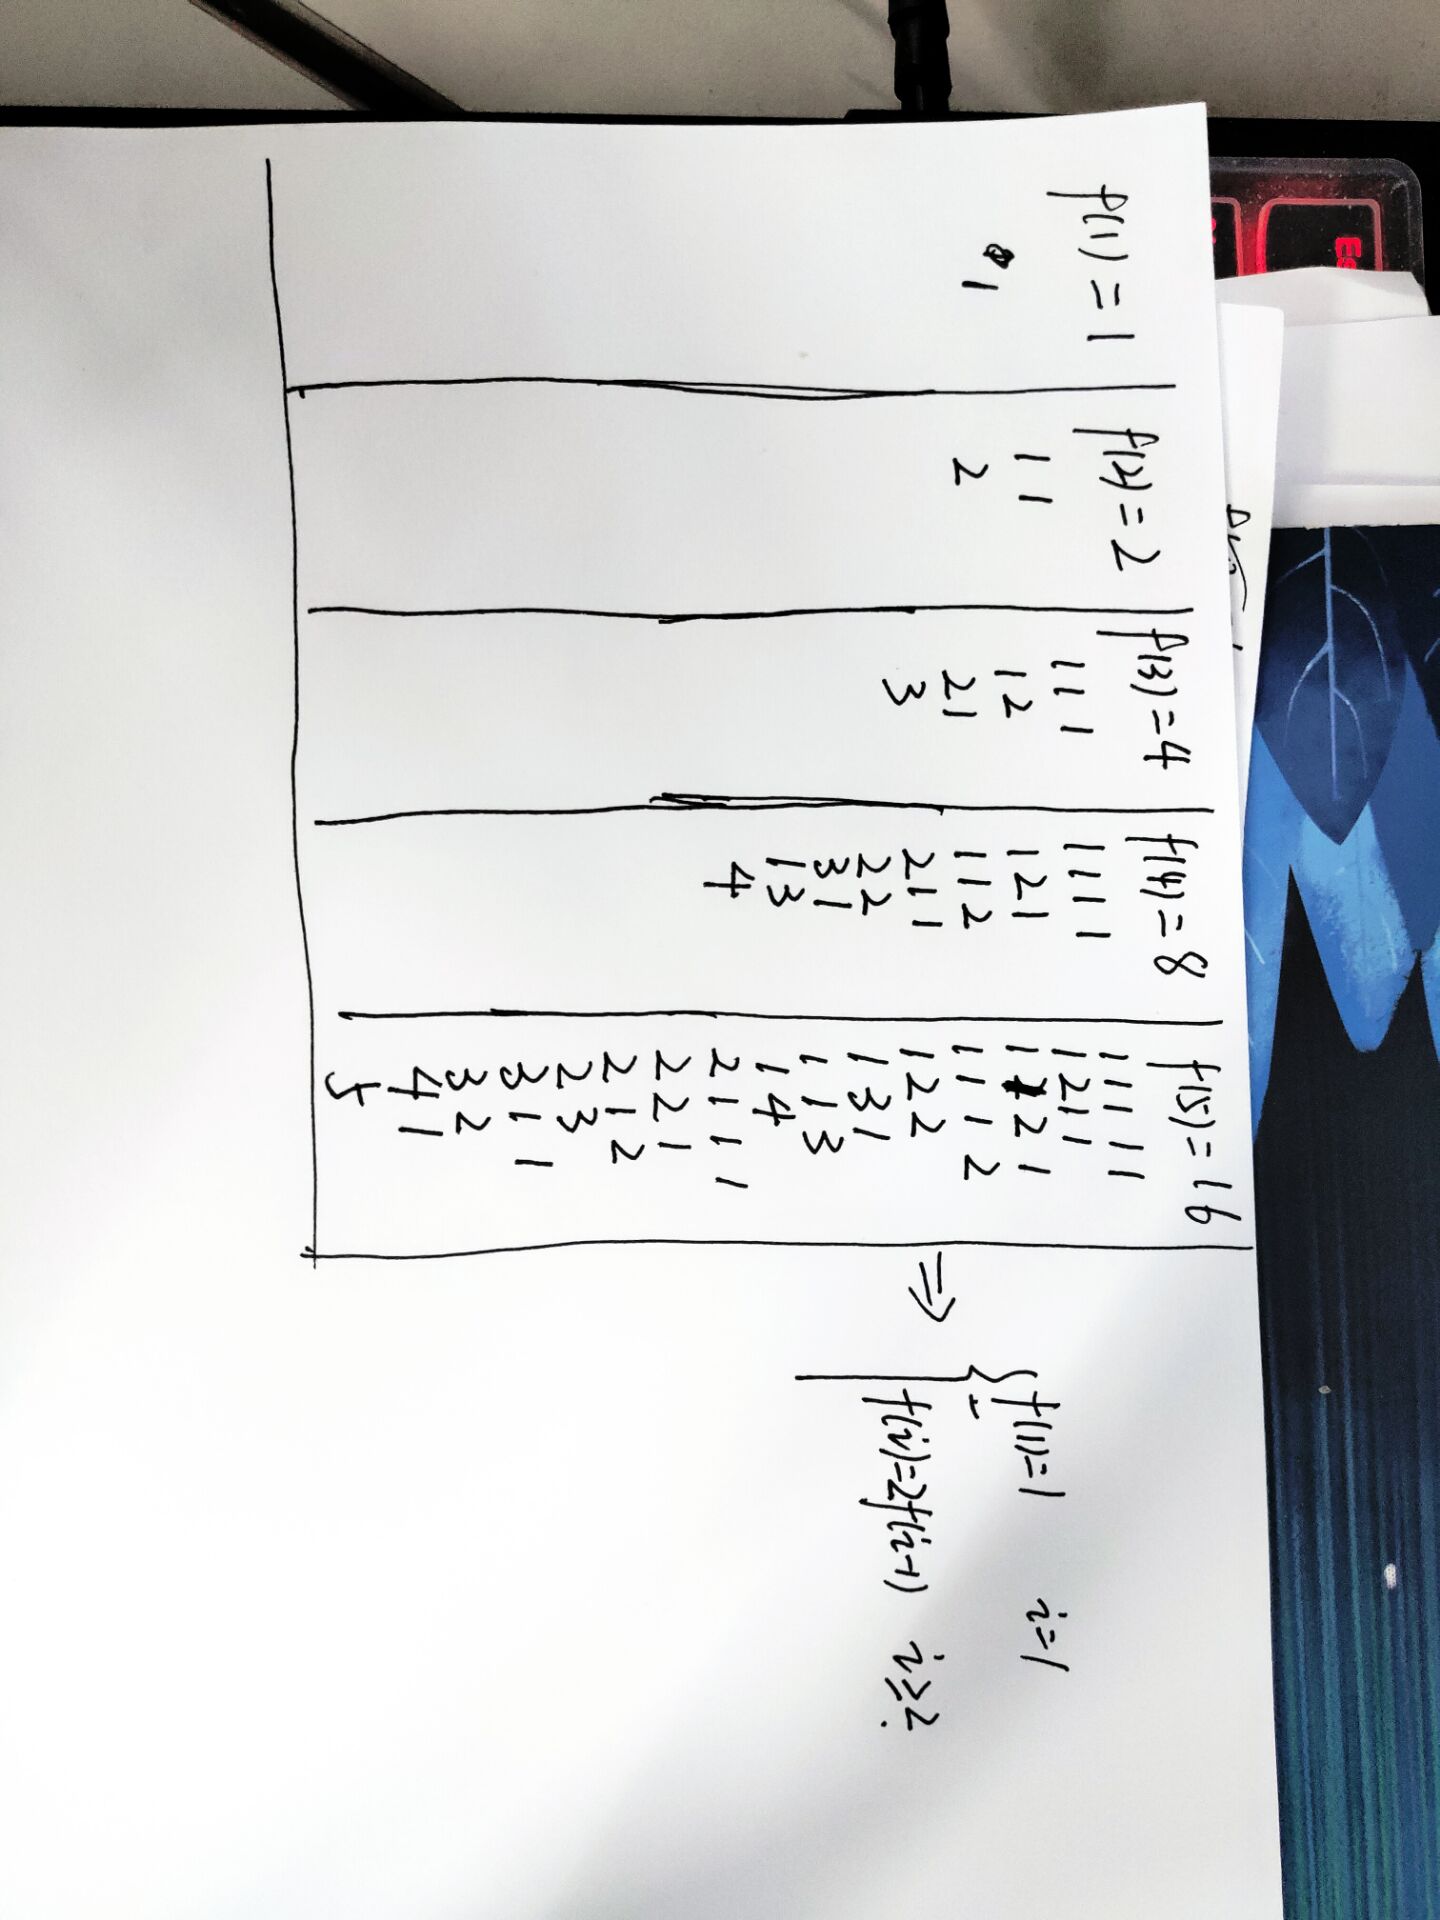 f(1) = 1
1
f(2) = 2
1 1
2
f(3) = 4
1 1 1
1 2
2 1
3
f(4) = 8
1 1 1 1
1 2 1
1 1 2
2 1 1
2 2
3 1
1 3
4
f(5) = 16
1 1 1 1 1
1 2 1 1
1 1 2 1
1 1 1 2
1 2 2
1 3 1
1 1 3
1 4
2 1 1 1
2 2 1
2 1 2
2 3
3 1 1
3 2
4 1
5
⇒
{ f(1) = 1 i = 1
f(i) = 2f(i-1) i ≥ 2.
Es